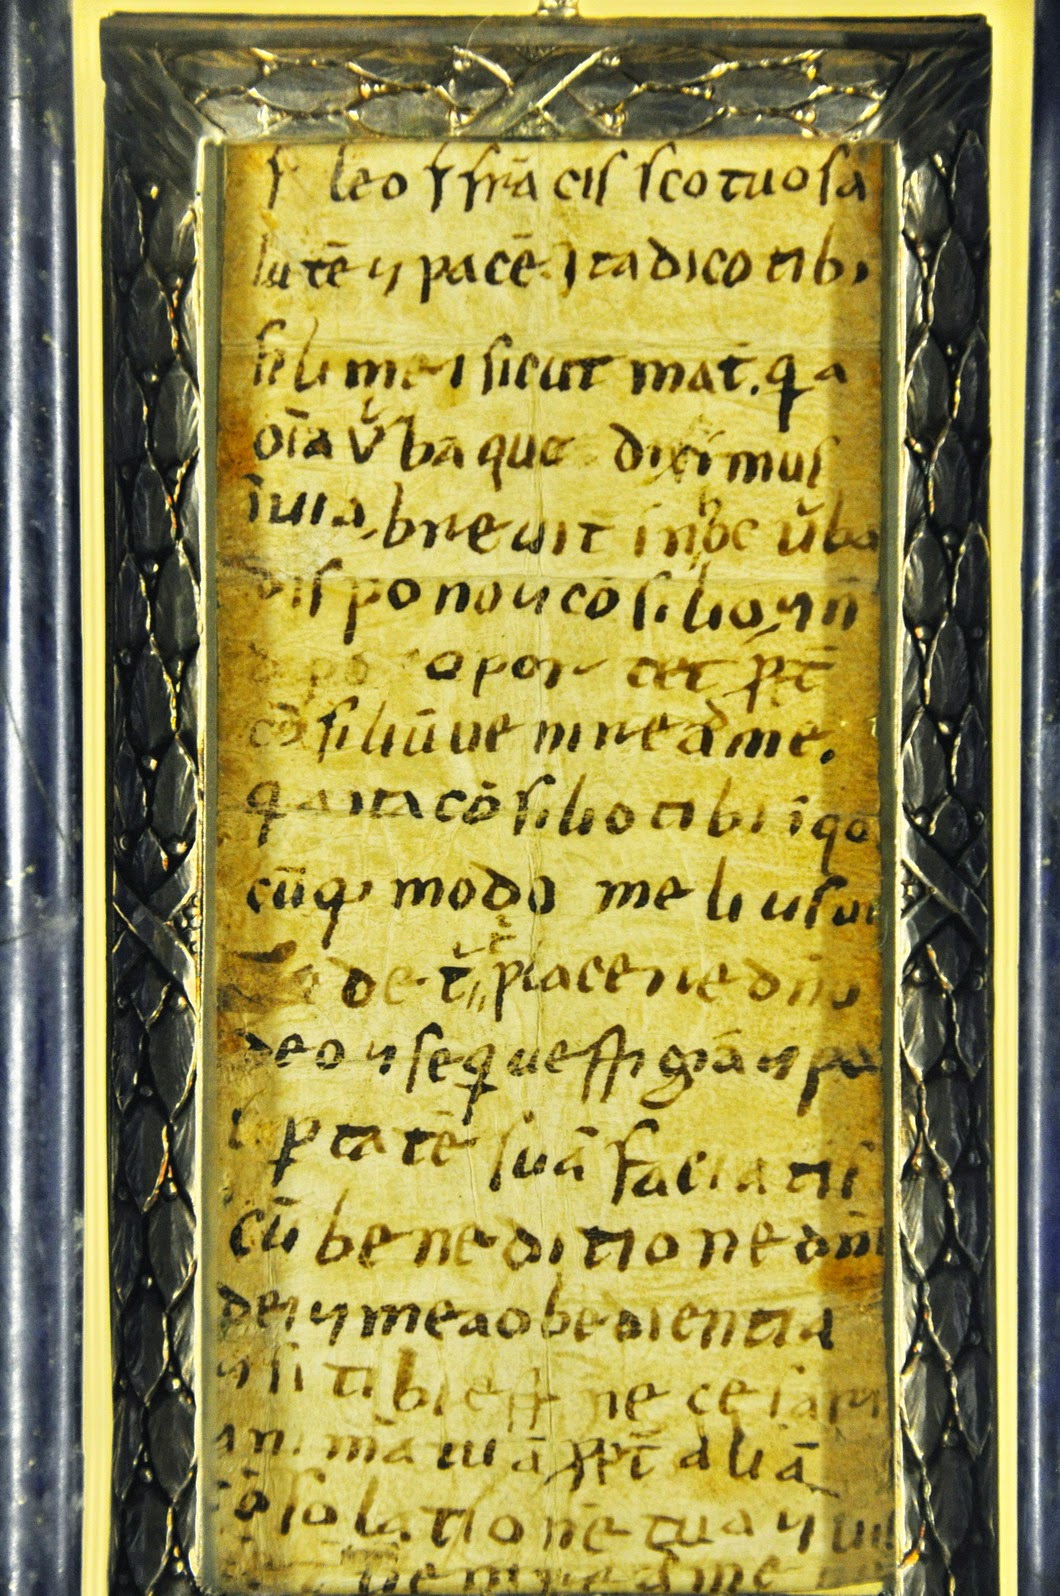 f leo f frācis sco tuo sa
lutē ⁊ pacē. Ita dico tibi
fili mei sicut mat̄. q a
oīa v̆ba que diximus
ī uia, breuit̄ in hoc v̆ba
dispono ⁊ cōsilio, ⁊ n̄
oportet ꝓpt̄
cōsiliū uenire ad me.
q a ita cōsilio tibi ī qo
cūq; modo melius ui
de t̄ placere dn̄o
deo ⁊ seq̄ue ffigiā ⁊ pa
ꝑtatē suā faciatis
cū beneditione dn̄i
dei ⁊ mea obedientia
⁊ si tibi eff necesariū
animā tuā ꝓpt̄ aliā
cōsolationē tua ⁊ uis
uenire ad me